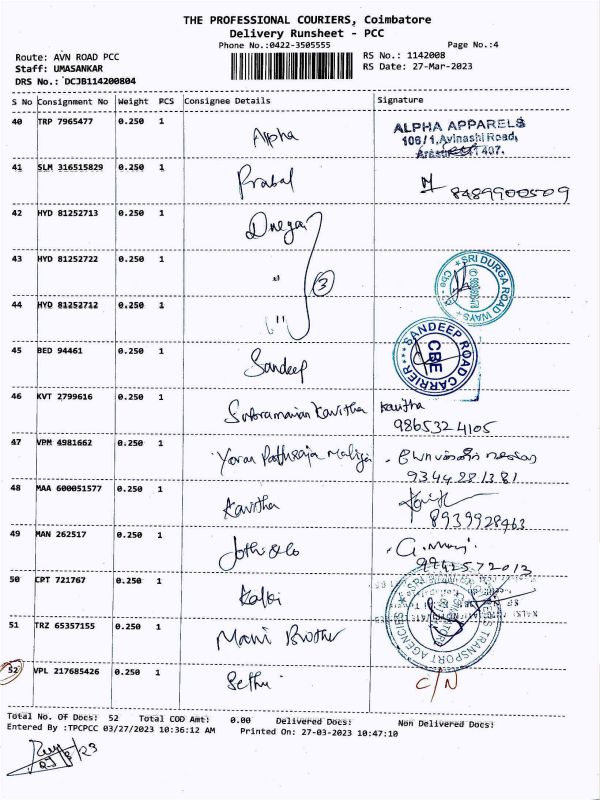 THE PROFESSIONAL COURIERS, Coimbatore
Delivery Runsheet - PCC
Phone No.:0422-3505555
Page No.:4
Route: AVN ROAD PCC
RS No.: 1142008
Staff: UMASANKAR
RS Date: 27-Mar-2023
DRS No.: DCJB114200804
S No Consignment No Weight PCS Consignee Details Signature
40 TRP 7965477 0.250 1 Alpha
ALPHA APPARELS
106/1,Avinashi Road,
41 SLM 316515829 0.250 1 Prabal
8489900509
42 HYD 81252713 0.250 1
43 HYD 81252722 0.250 1 " 3
SRI DURGA ROAD WAYS
44 HYD 81252712 0.250 1 "
45 BED 94461 0.250 1 Sandeep
SANDEEP ROAD CARRIER
CBE
46 KVT 2799616 0.250 1 Subramanian Kavitha Kavitha
9865324105
47 VPM 4981662 0.250 1
9344281381
48 MAA 600051577 0.250 1 Kavitha
8939928463
49 MAN 262517 0.250 1 Jothi & Co
50 CPT 721767 0.250 1 Kalki
TRANSPORT AGENCIES
51 TRZ 65357155 0.250 1 Mani Brother
52 VPL 217685426 0.250 1 Sethu C/N
Total No. Of Docs: 52 Total COD Amt: 0.00 Delivered Docs: Non Delivered Docs:
Entered By :TPCPCC 03/27/2023 10:36:12 AM Printed On: 27-03-2023 10:47:10